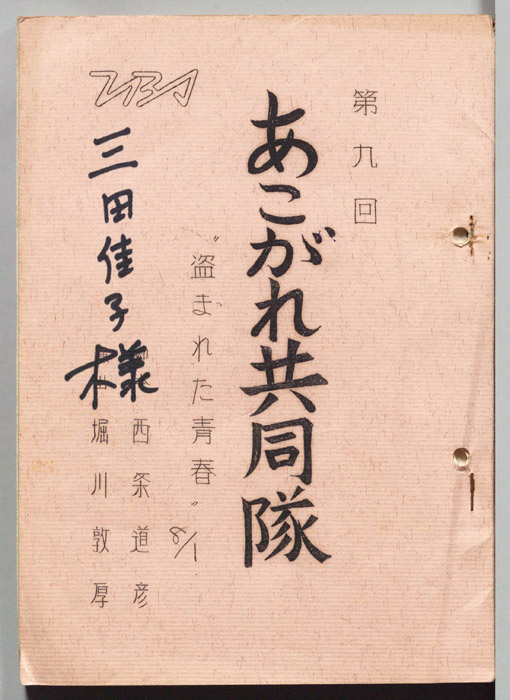 第九回
あこがれ共同隊
“盗まれた青春” 8/1
西条道彦
堀川敦厚
三田佳子様